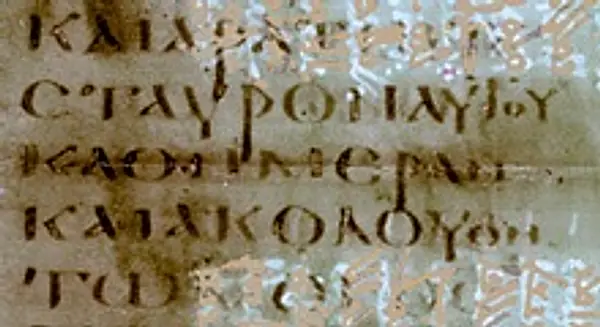 ΚΑΙΑΡΑΤΩ
ϹΤΑΥΡΟΝΑΥΤΟΥ
ΚΑΘΗΜΕΡΑΝ
ΚΑΙΑΚΟΛΟΥΘΗ
ΤΩΜΟΙ